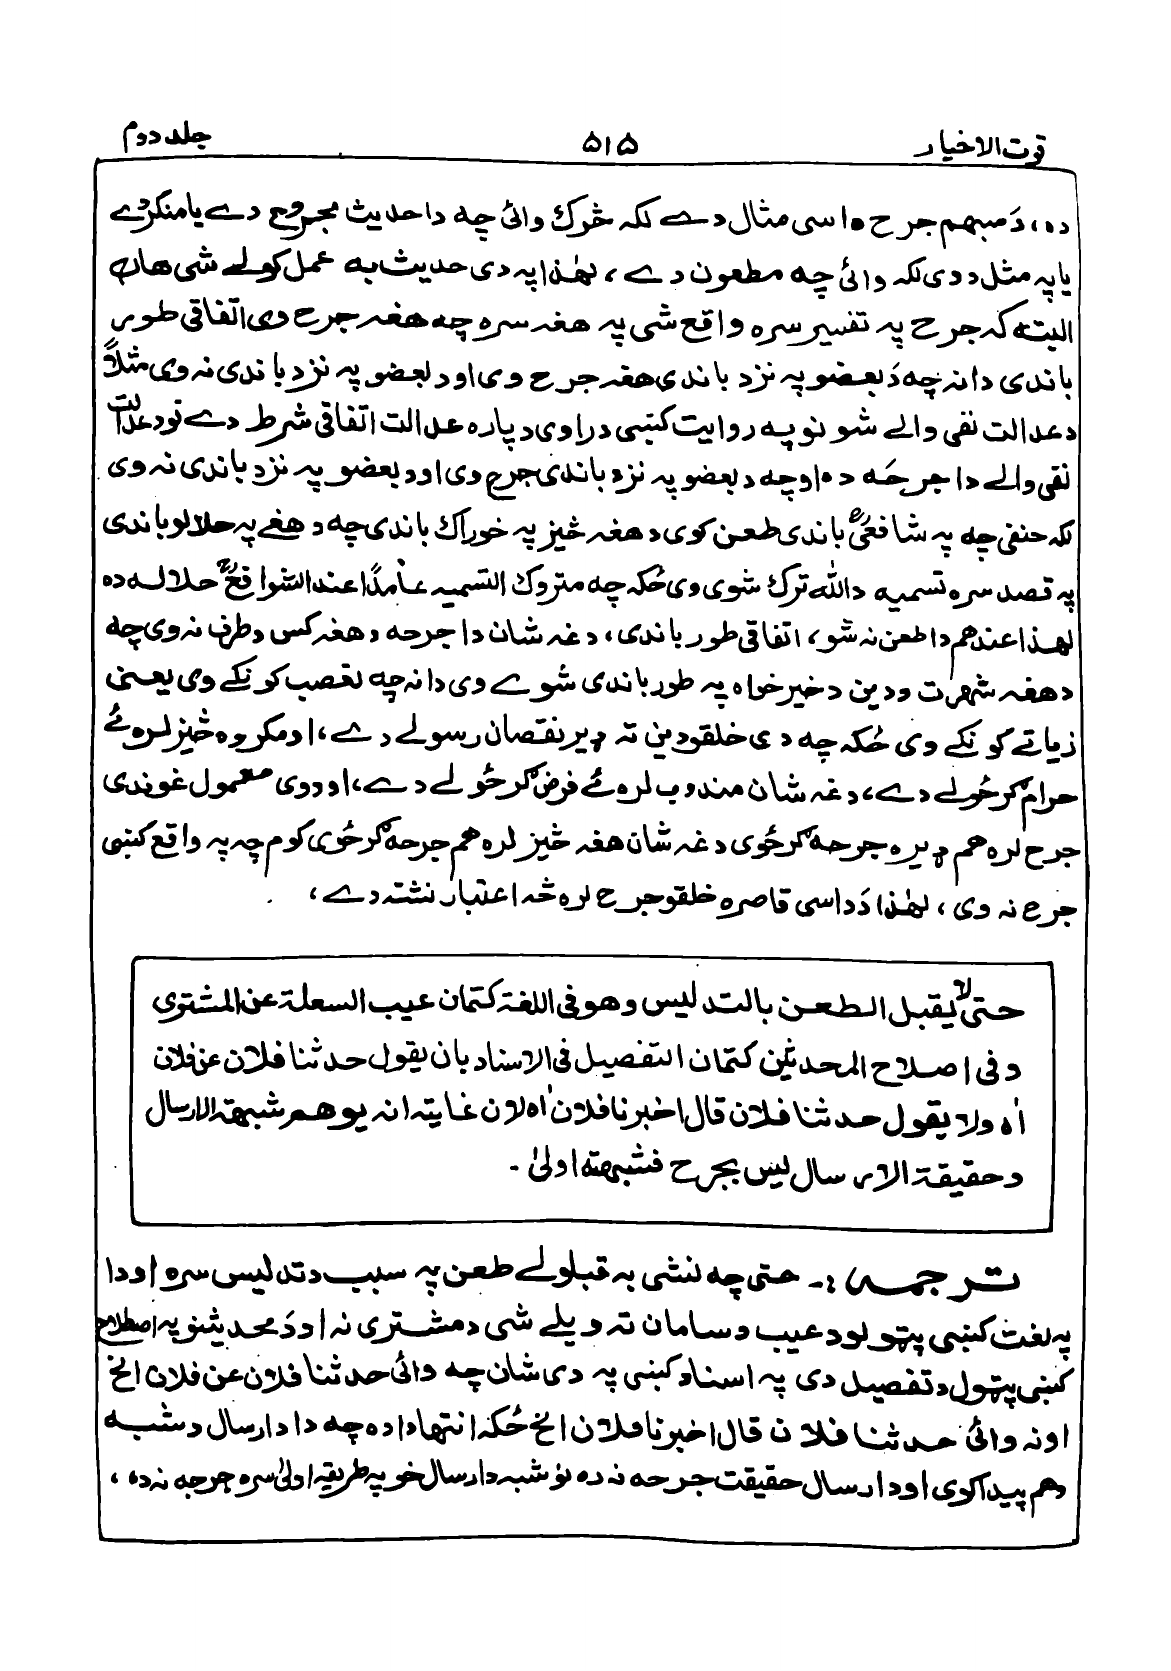 قوت الاخیار ۵۱۵ جلد دوم
ده، دَ مبهم جرح داسی مثال دے لکه څوک وائی چه دا حدیث مجروح دے یا منکر دے
یا په مثل ددی لکه وائی چه مطعون دے، لهٰذا په دی حدیث به عمل کولے شی هان
البته که جرح په تفسیر سره واقع شی په هغه سره چه هغه جرح وی اتفاقی طور
باندی دا نه چه دَ بعضو په نزد باندی هغه جرح وی او د بعضو په نزد باندی نه وی مثلاً
د عدالت نفی والے شو نو په روایت کښی د راوی دپاره عدالت اتفاقی شرط دے نو د عدالت
نفی والے دا جرحه ده او چه د بعضو په نزد باندی جرح وی او د بعضو په نزد باندی نه وی
لکه حنفی چه په شافعیؒ باندی طعن کوی د هغه څیز په خوراک باندی چه د هغے په حلالو باندی
په قصد سره تسمیه د الله ترک شوی وی ځکه چه متروک التسمیه عامداً عند الشوافعؒ حلاله ده
لهذا عندهم دا طعن نه شو، اتفاقی طور باندی، دغه شان دا جرحه د هغه کس د طرف نه وی چه
د هغه شهرت و دین د خیر خواه په طور باندی شوے وی دا نه چه تعصب کونکے وی یعنی
زیاتے کونکے وی ځکه چه دی خلقو دین ته ډیر نقصان رسولے دے، او مکروه څیز لره ئے
حرام ګرځولے دے، دغه شان مندوب لره ئے فرض ګرځولے دے، او دوی معمول غوندی
جرح لره هم ډیره جرحه ګرځوی دغه شان هغه څیز لره هم جرحه ګرځوی کوم چه په واقع کښی
جرح نه وی، لهٰذا دَ داسی قاصره خلقو جرح لره څه اعتبار نشته دے،
حتی لا یقبل الطعن بالتدلیس وهو فی اللغة کتمان عیب السعلة عن المشتری
و فی اصلاح المحدثین کتمان التفصیل فی الاسناد بان یقول حدثنا فلان عن فلان
اه ولا یقول حدثنا فلان قال اخبرنا فلان اه لان غایته انه یوهم شبهة الارسال
وحقیقة الارسال لیس بجرح فشبهته اولیٰ -
ترجمه:- حتی چه ننشی به قبلولے طعن په سبب د تدلیس سره او دا
په لغت کښی پټولو د عیب و سامان ته ویلے شی د مشتری نه او دَ محدیثنو په اصطلاح
کښی پټول د تفصیل دی په اسناد کښی په دی شان چه وائی حدثنا فلان عن فلان الخ
او نه وائی حدثنا فلان قال اخبرنا فلان الخ ځکه انتها داده چه دا دارسال د شبه
هم پیدا کوی او دارسال حقیقت جرحه نه ده نو شبه دارسال خو په طریقه اولیٰ سره جرحه نه ده،